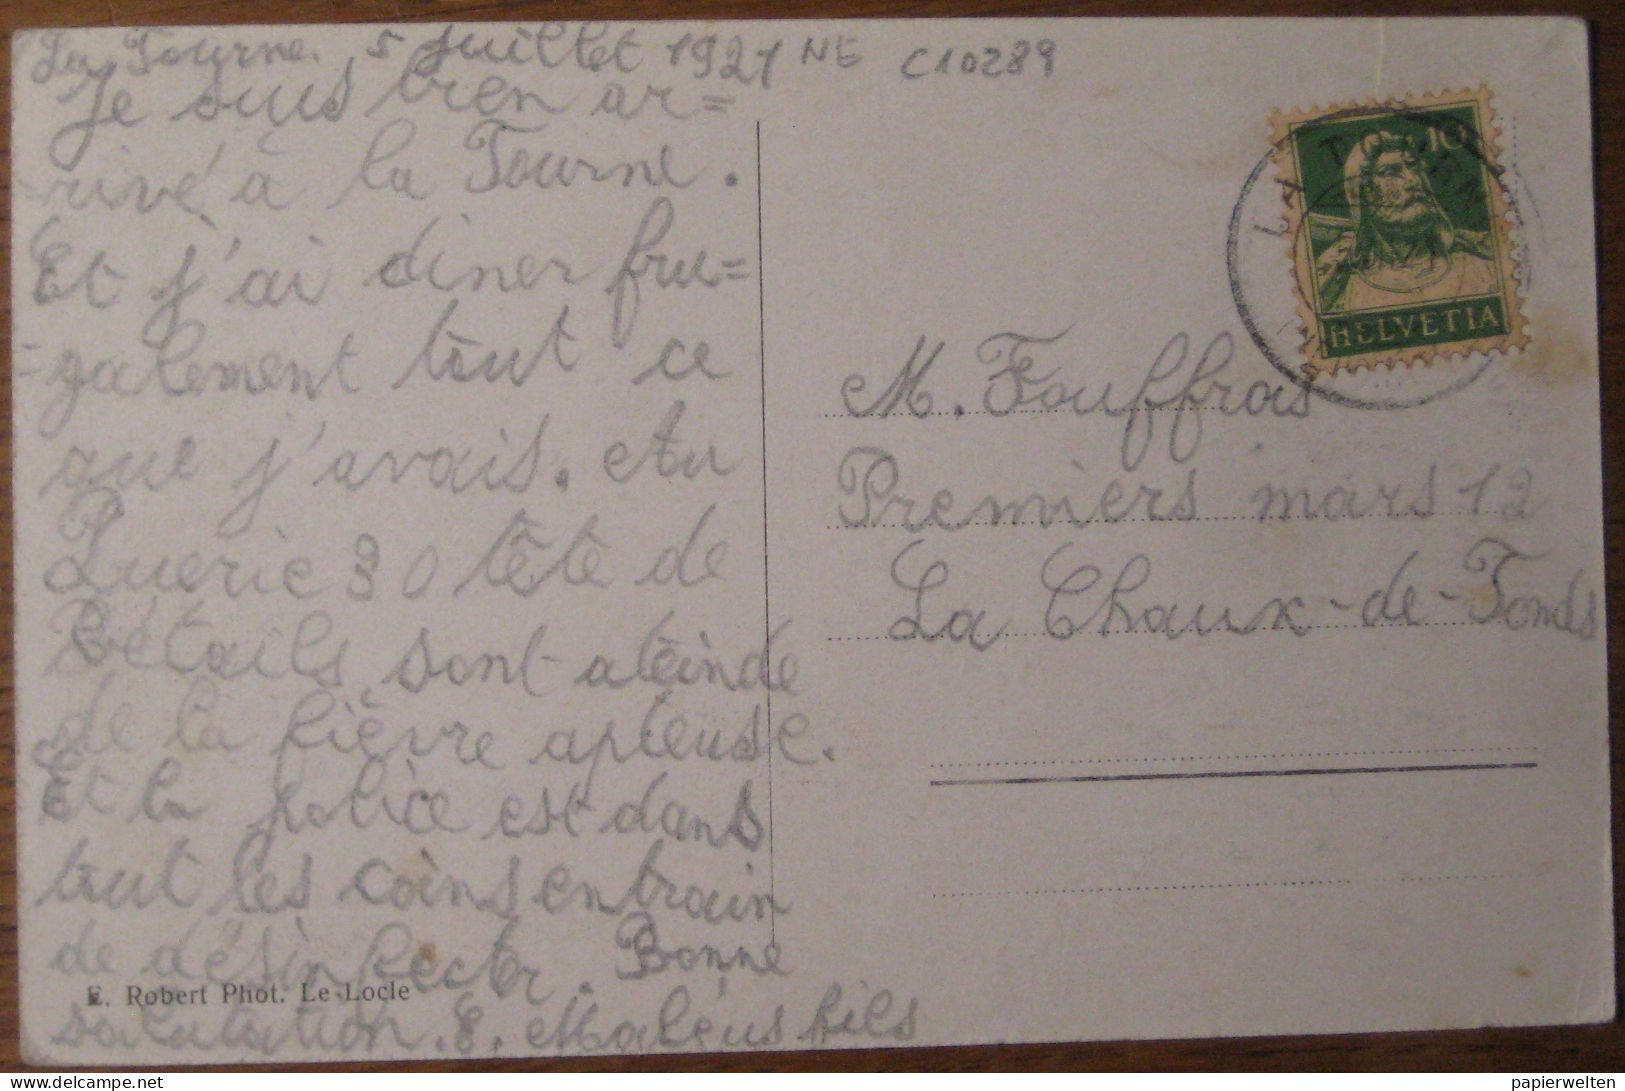 La Tourne. 5 Juillet 1921 NE C10289
Je suis bien ar=
-rivé à la Tourne.
Et j'ai diner fru=
-galement tout ce
que j'avais. Au
Querie 30 tête de
Bétails sont ateinde
de la fièvre apteuse.
Et la police est dans
tout les coins entrain
de désinfecter. Bonne
E. Robert Phot. Le Locle
salutation. E. Maléus fils
10
HELVETIA
LA TOURNE
M. Fouffras
Premiers mars 12
La Chaux-de-Fonds
papierwelten